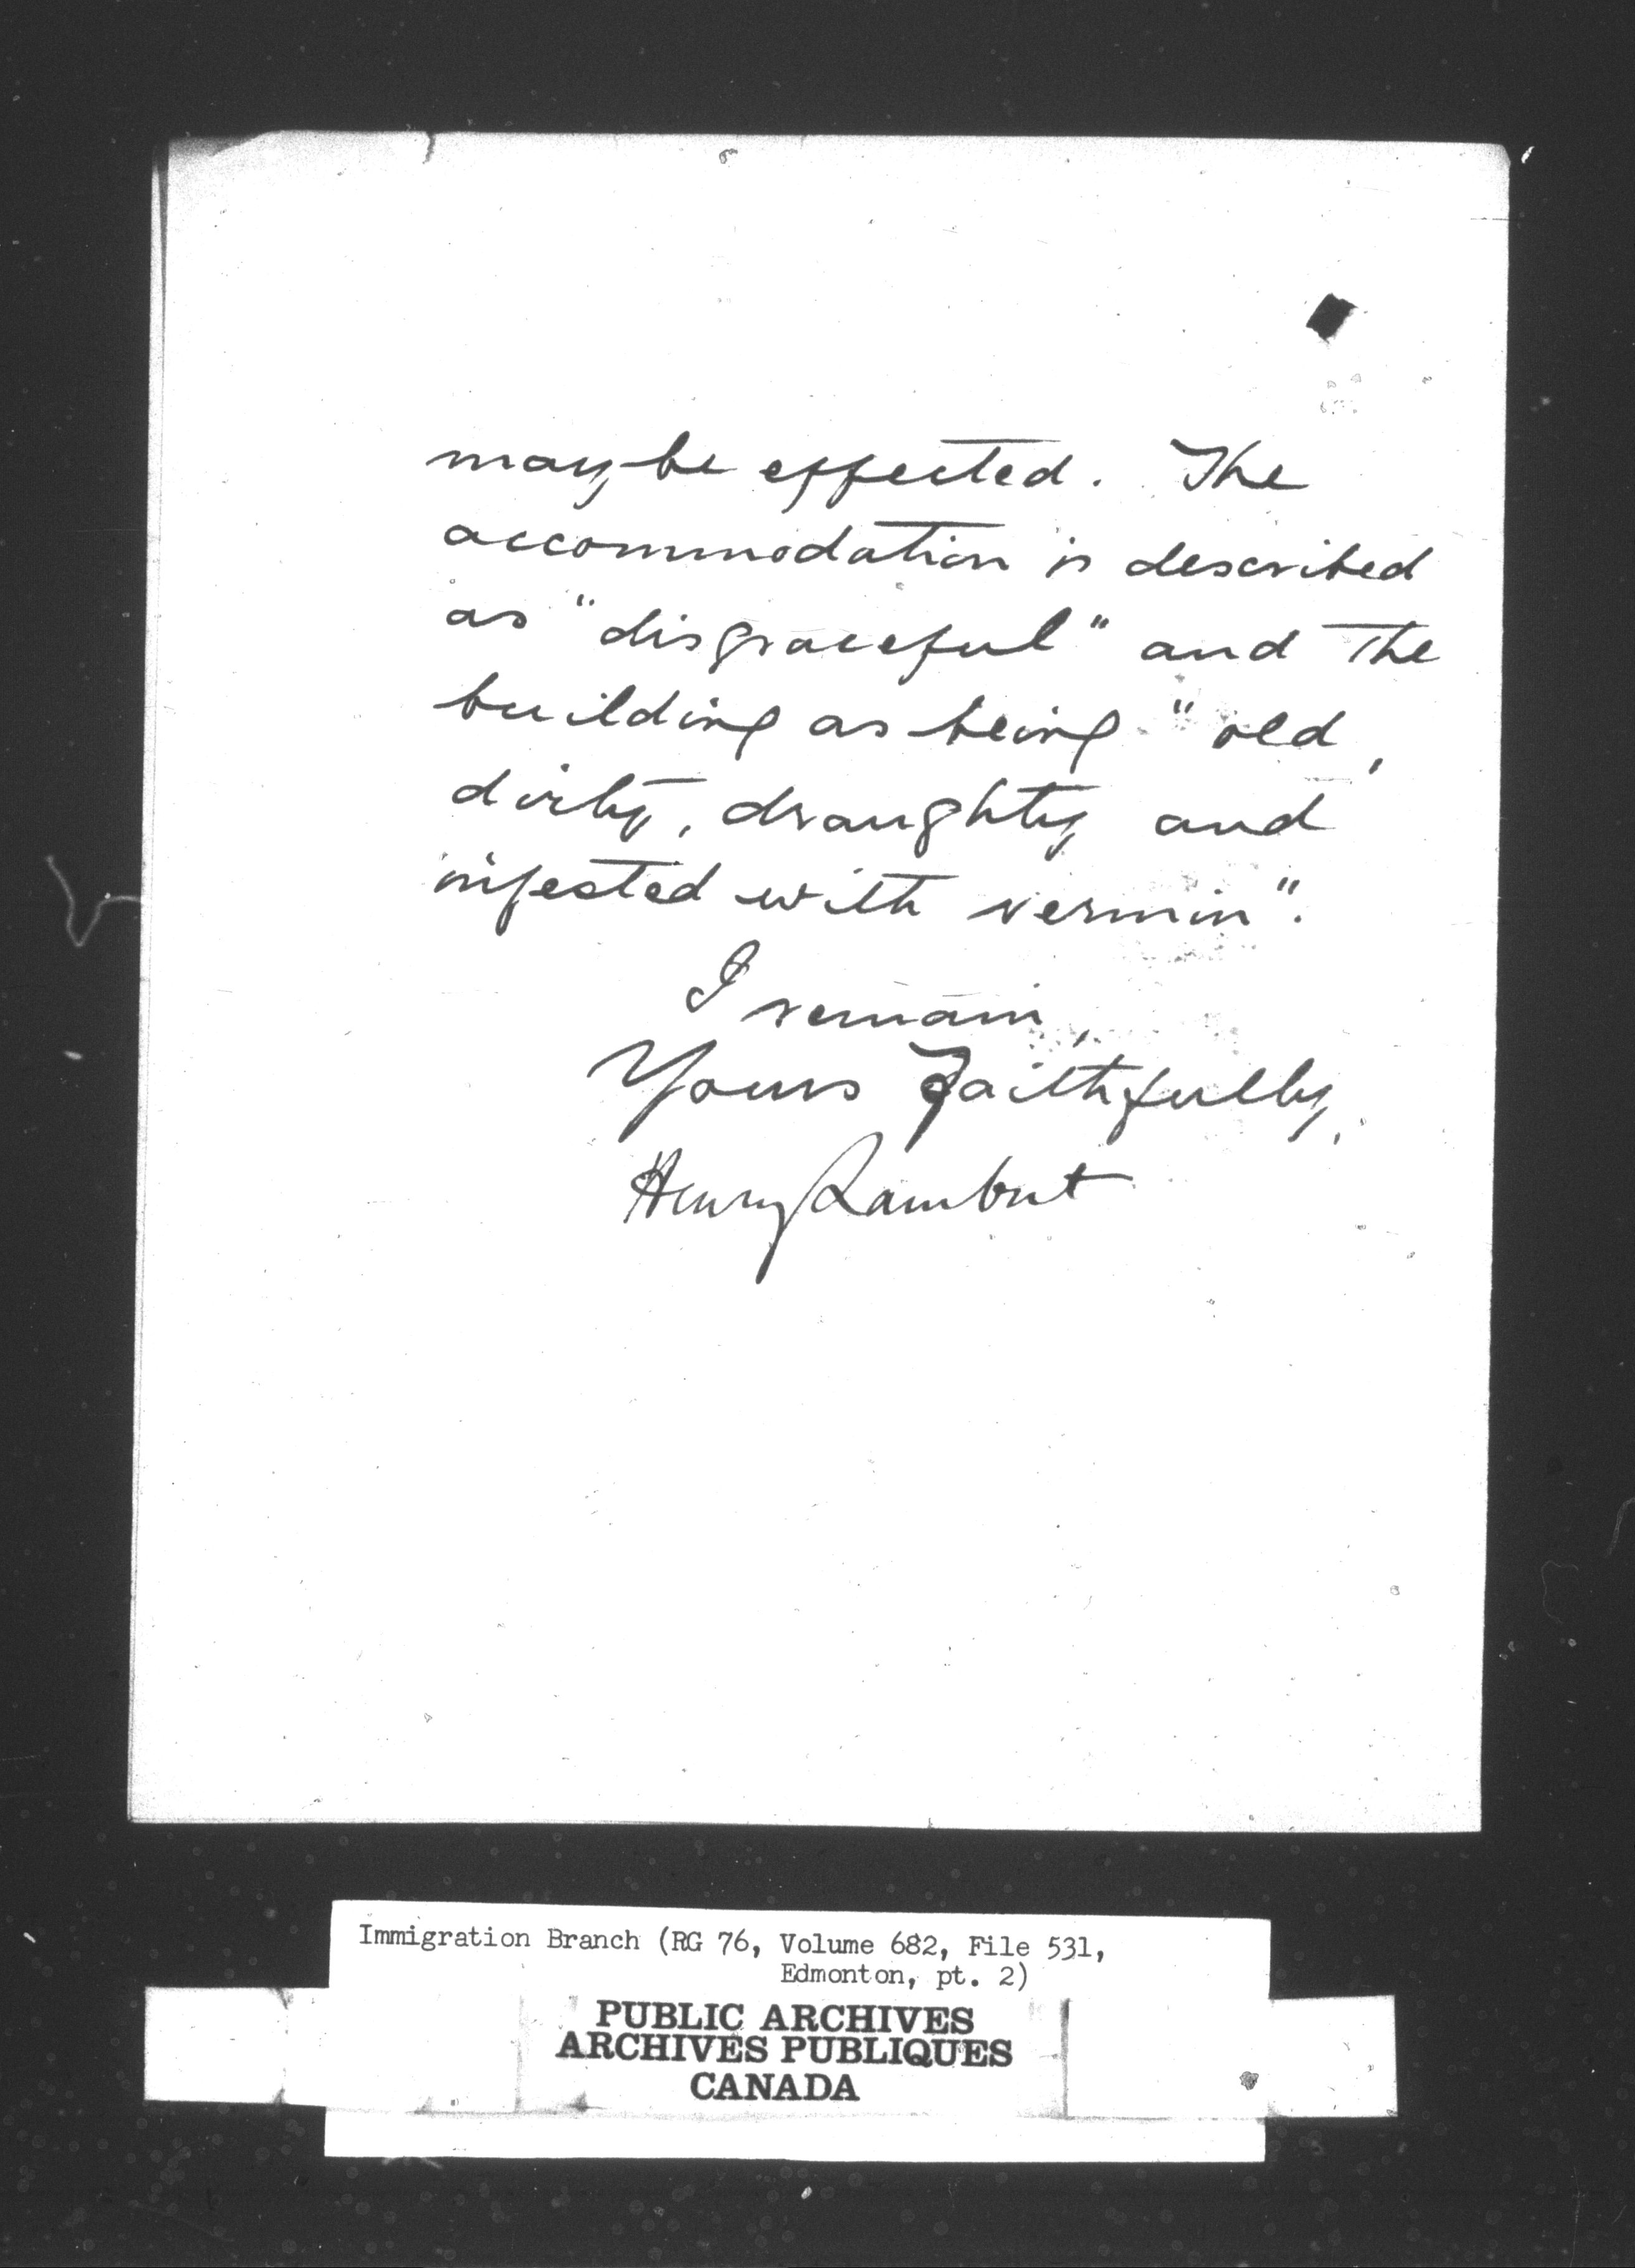 may be effected. The
accommodation is described
as "disgraceful" and the
building as being "old,
dirty, draughty and
infested with vermin".
I remain,
Yours Faithfully,
Henry Lambert
Immigration Branch (RG 76, Volume 682, File 531,
Edmonton, pt. 2)
PUBLIC ARCHIVES
ARCHIVES PUBLIQUES
CANADA